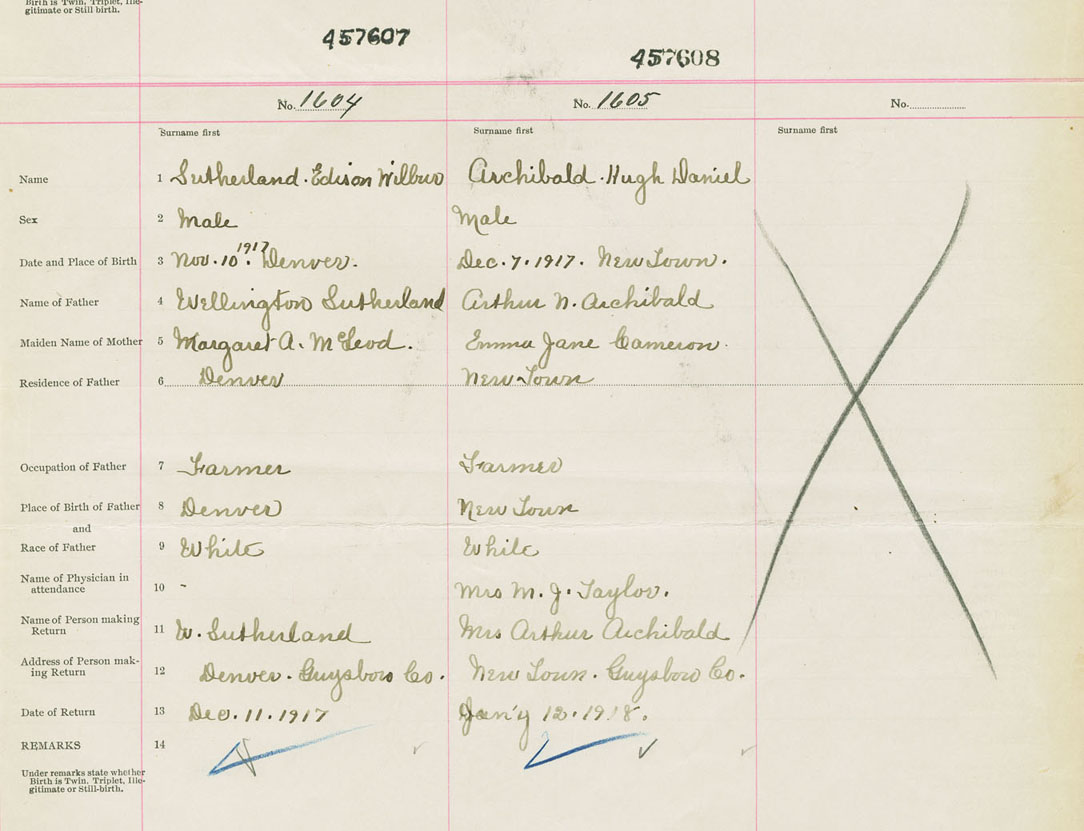 Birth is Twin, Triplet, Ille-
gitimate or Still birth.
457607
457608
No. 1604
No. 1605
No.
Surname first
Surname first
Surname first
Name 1 Sutherland. Edison Wilbur Archibald. Hugh Daniel
Sex 2 Male Male
Date and Place of Birth 3 Nov. 10. 1917 Denver. Dec. 7. 1917. New Town.
Name of Father 4 Wellington Sutherland Arthur N. Archibald
Maiden Name of Mother 5 Margaret A. McLeod. Emma Jane Cameron.
Residence of Father 6 Denver New Town
Occupation of Father 7 Farmer Farmer
Place of Birth of Father 8 Denver New Town
and
Race of Father 9 White White
Name of Physician in
attendance 10 - Mrs M. J. Taylor.
Name of Person making
Return 11 W. Sutherland Mrs Arthur Archibald
Address of Person mak-
ing Return 12 Denver. Guysboro Co. New Town. Guysboro Co.
Date of Return 13 Dec. 11. 1917 Jan'y 12. 1918.
REMARKS 14
Under remarks state whether
Birth is Twin, Triplet, Ille-
gitimate or Still-birth.